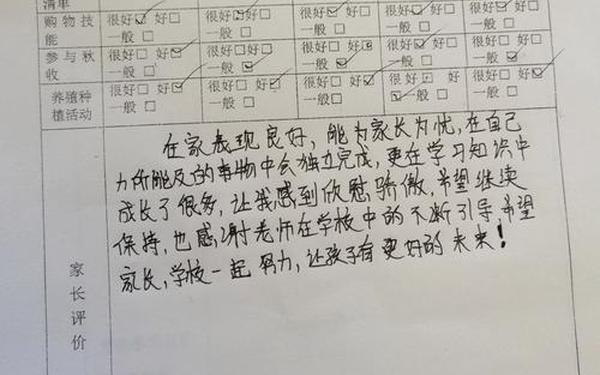 清单
购物技能 很好☑ 好☐ 很好☐ 好☑ 很好☑ 好☐ 很好☐ 好☑ 很好☐ 好☑
一般☐ 一般☐ 一般☐ 一般☐ 一般☐
参与秋收 很好☐ 好☑ 很好☐ 好☐ 很好☐ 好☑ 很好☐ 好☑ 很好☐ 好☐
一般☐ 一般☑ 一般☐ 一般☐ 一般☑
养殖种植活动 很好☐ 好☑ 很好☐ 好☑ 很好☐ 好☑ 很好☐ 好☑ 很好☐ 好☑
一般☐ 一般☐ 一般☐ 一般☐ 一般☐
家长评价
在家表现良好，能为家长为忧，在自己
力所能及的事物中会独立完成，更在学习知识中
成长了很多，让我感到欣慰骄傲，希望继续
保持，也感谢老师在学校中的不断引导，希望
家长，学校一起努力，让孩子有更好的未来！